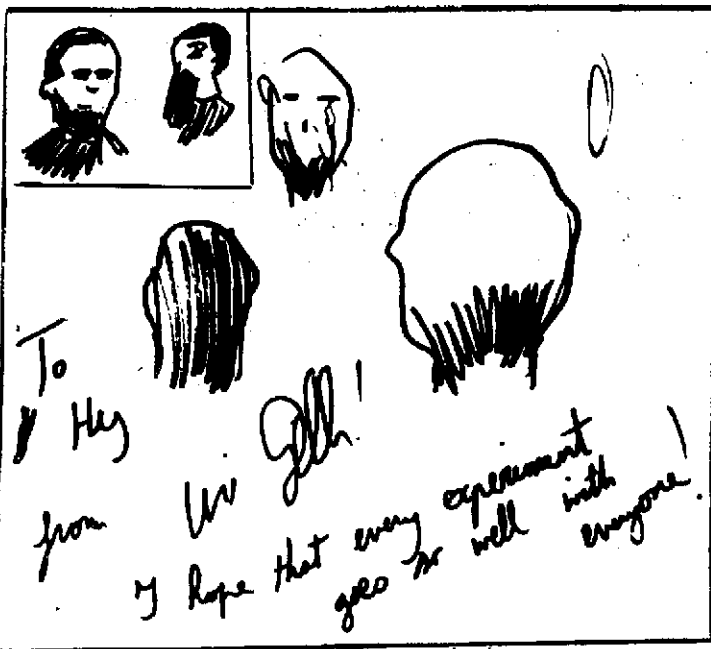 To
from Uri Geller!
I hope that every experiment
goes so well with
everyone!